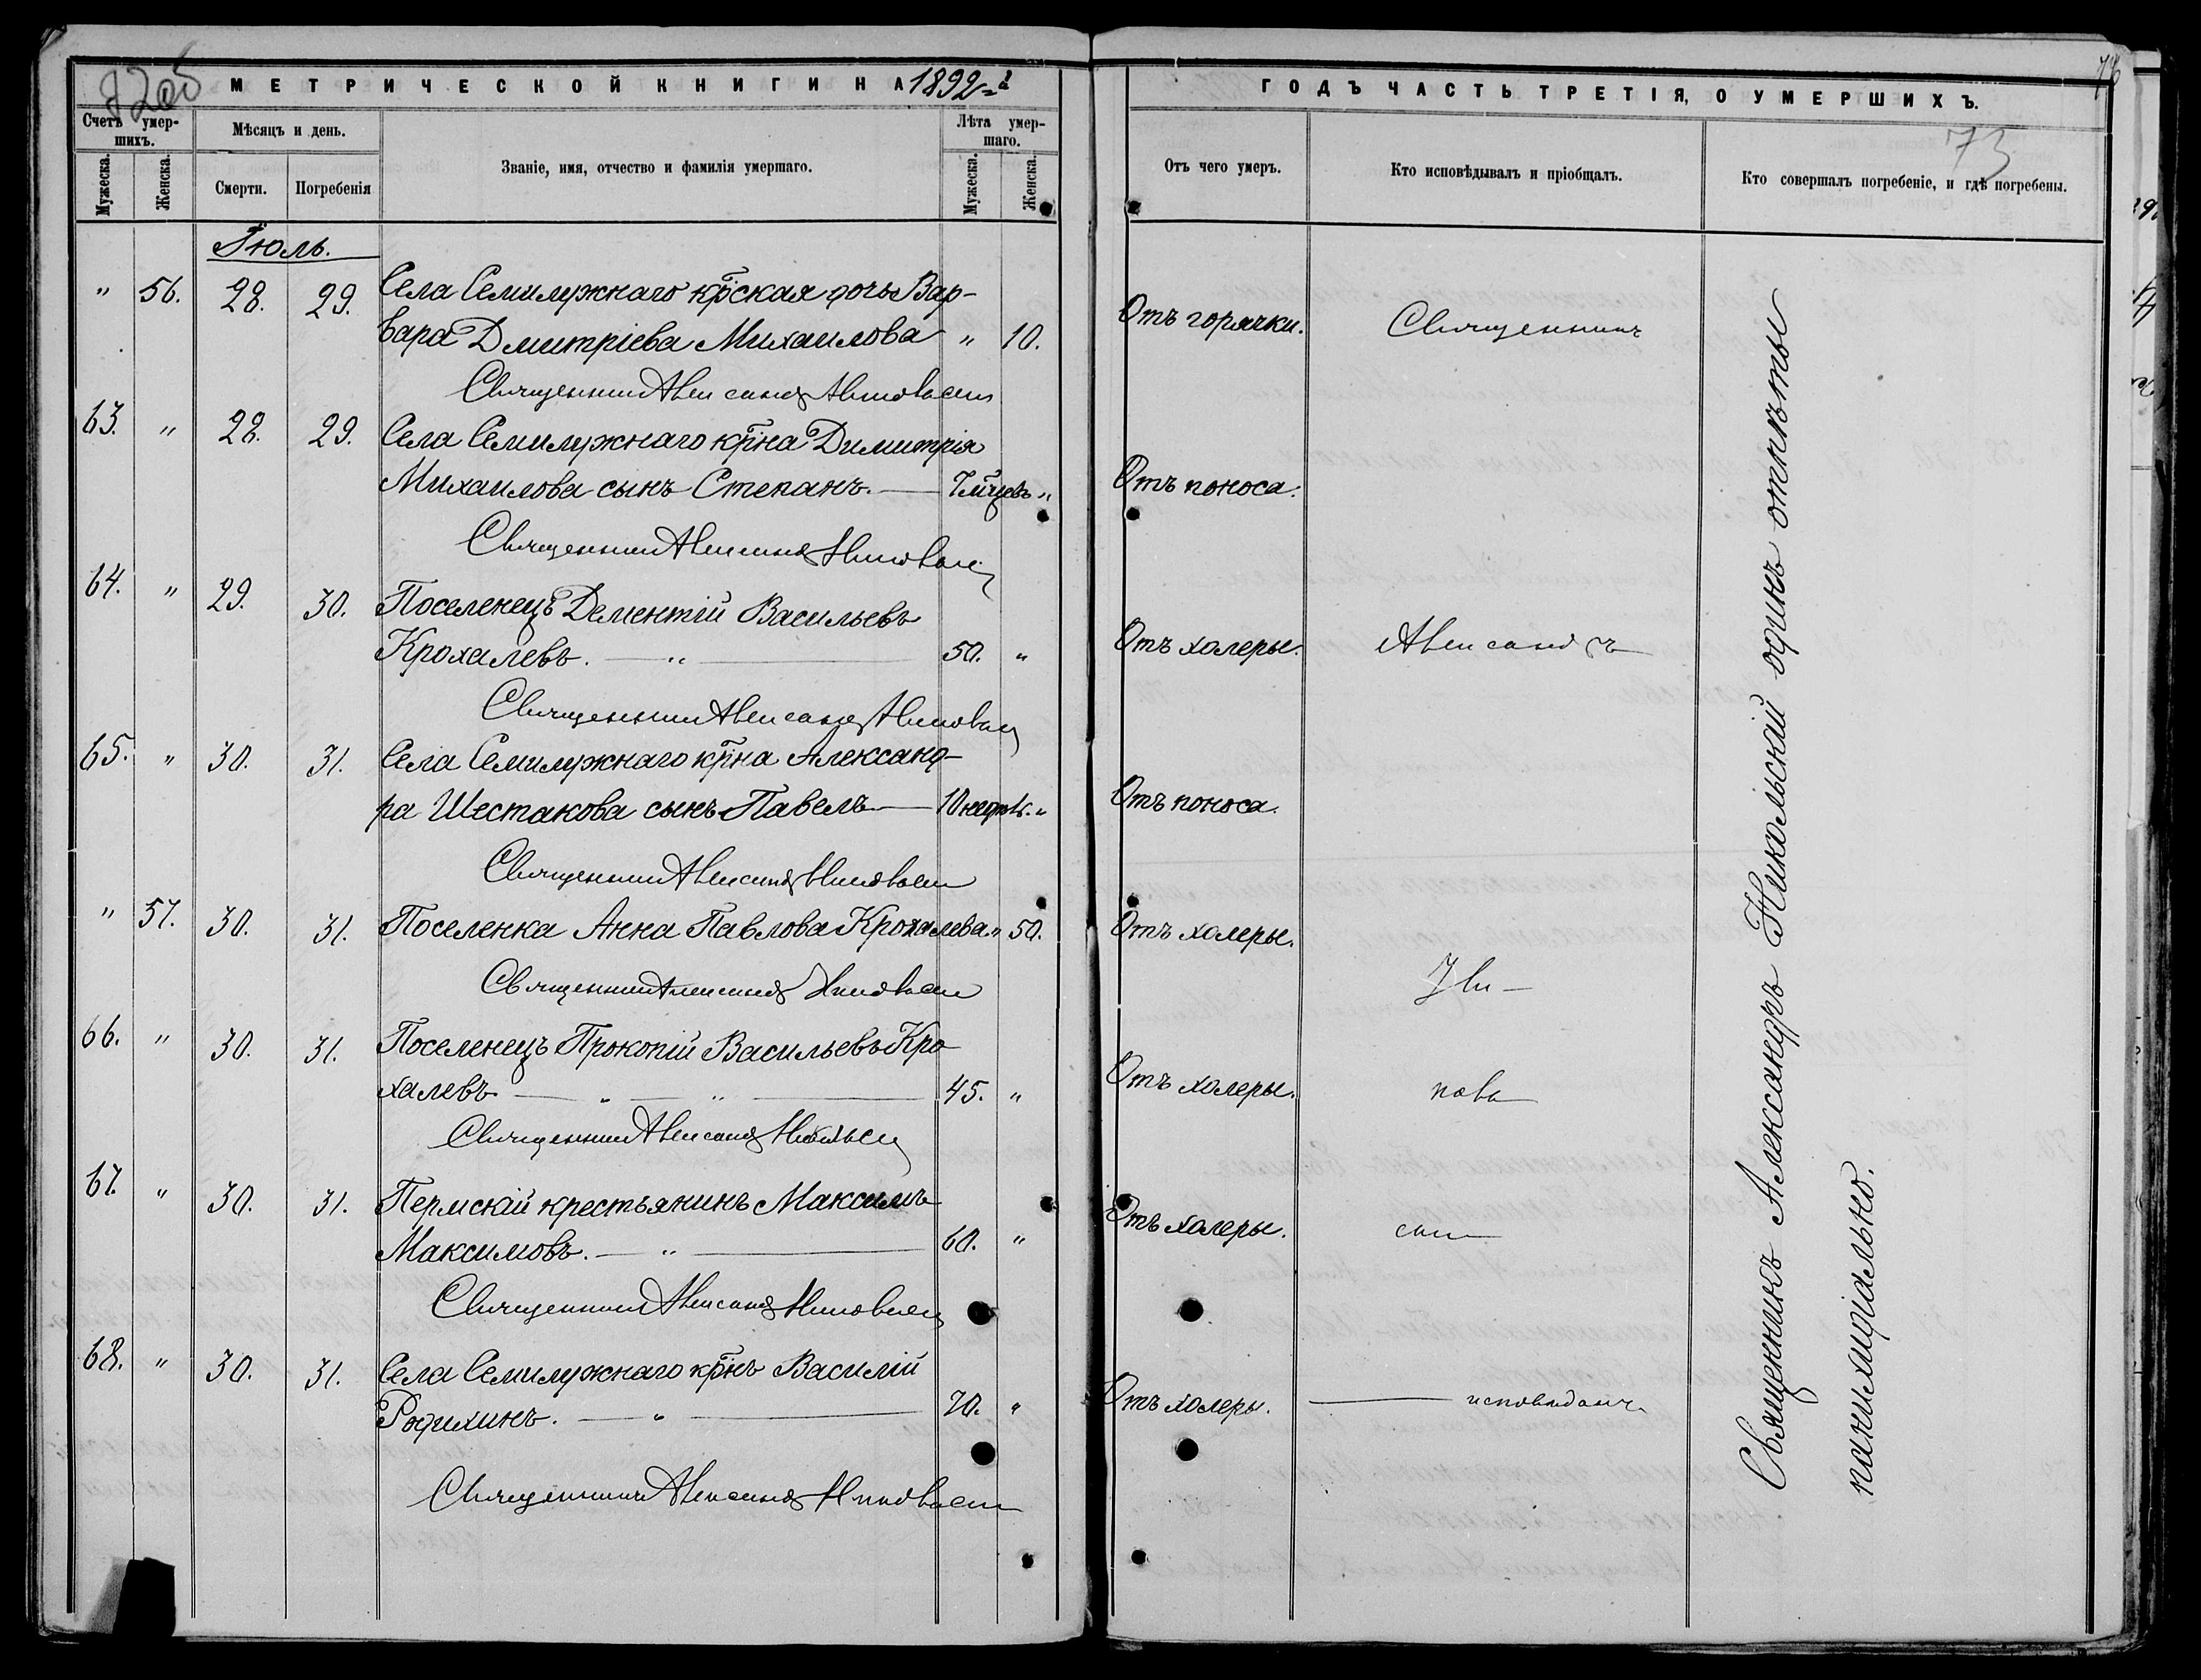 МЕТРИЧЕСКОЙ КНИГИ НА 1892-й
ГОДЪ ЧАСТЬ ТРЕТІЯ, О УМЕРШИХЪ.
73
Счетъ умер-
шихъ.
Мужеска.
Женска.
Мѣсяцъ и день.
Смерти.
Погребенія
Званіе, имя, отчество и фамилія умершаго.
Лѣта умер-
шаго.
Мужеска.
Женска.
Отъ чего умеръ.
Кто исповѣдывалъ и пріобщалъ.
Кто совершалъ погребеніе, и гдѣ погребены.
Іюль.
" 56. 28. 29. Села Семилужнаго кр̃ская дочь Вар-
вара Дмитріева Михаилова " 10. Отъ горячки. Священникъ
Священникъ Александръ
63. " 28. 29. Села Семилужнаго кр̃на Димитрія
Михаилова сынъ Степанъ. — 7 мцевъ " Отъ поноса.
Священникъ Александръ
64. " 29. 30. Поселенецъ Дементій Васильевъ
Крохалевъ. — " — 50. " Отъ холеры. Александръ
Священникъ Александръ
65. " 30. 31. Села Семилужнаго кр̃на Александ-
ра Шестакова сынъ Павелъ — 10 недѣль. " Отъ поноса.
Священникъ Александръ
" 57. 30. 31. Поселенка Анна Павлова Крохалева. " 50. Отъ холеры.
Священникъ Александръ
66. " 30. 31. Поселенецъ Прокопій Васильевъ Кро
халевъ — " — " — 45. " Отъ холеры.
Священникъ Александръ
67. " 30. 31. Пермскій крестьянинъ Максимъ
Максимовъ. — " — 60. " Отъ холеры.
Священникъ Александръ
68. " 30. 31. Села Семилужнаго кр̃нъ Василій
Родихинъ. — " — 70. " Отъ холеры.
Священникъ Александръ
Священникъ Александръ Никольскій одинъ отпѣты
панихидіально.